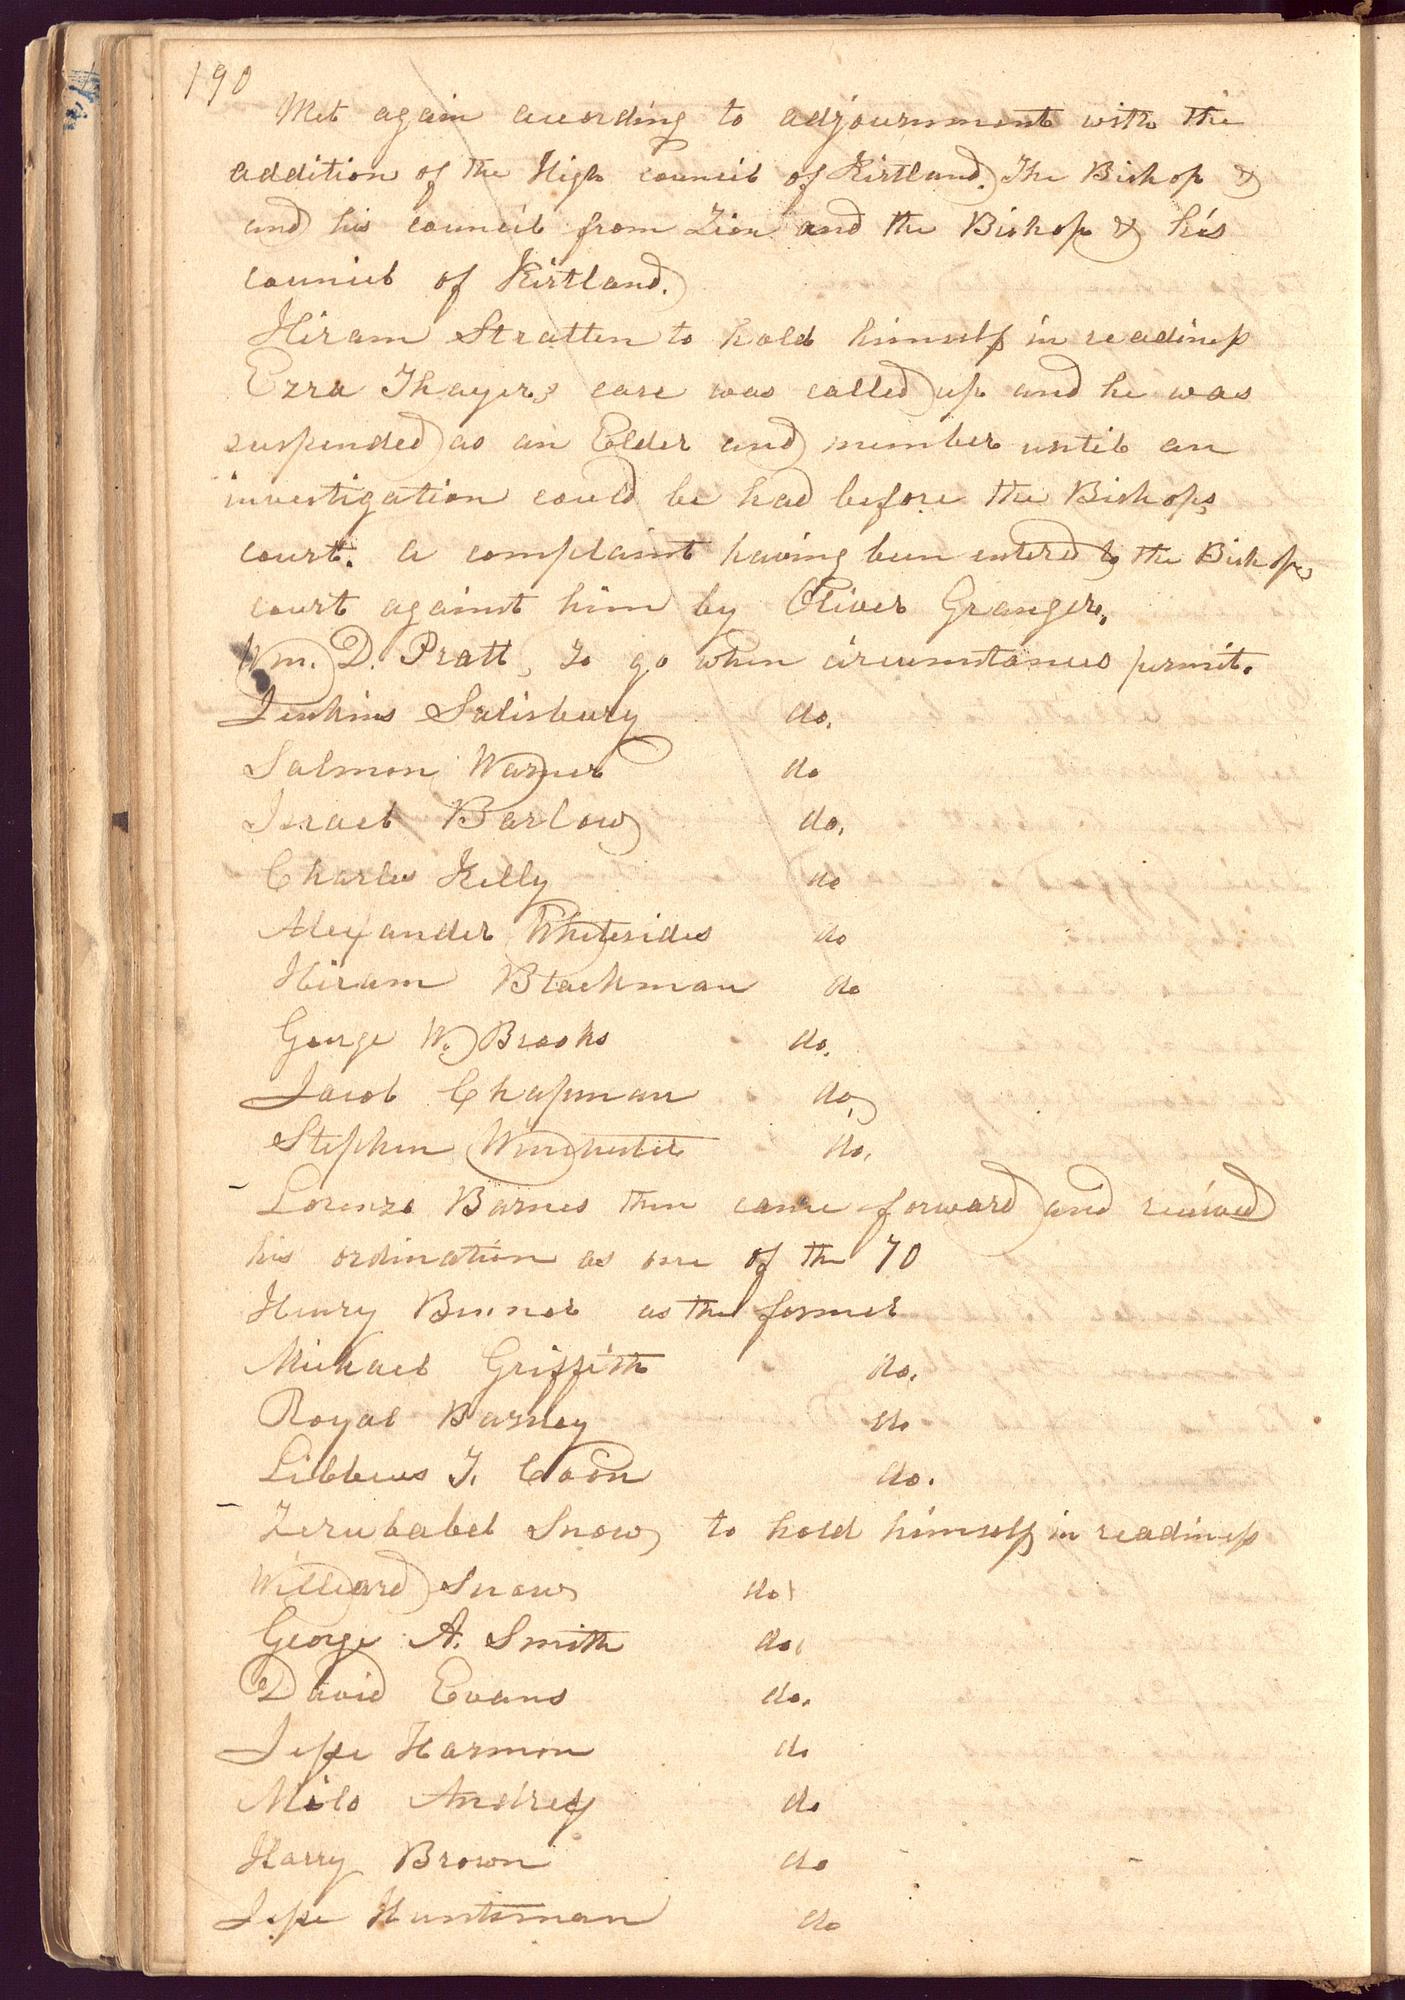 190
Met again according to adjournment with the
addition of the High council of Kirtland. The Bishop &
and his council from Zion and the Bishop & his
council of Kirtland.
Hiram Stratten to hold himself in readiness
Ezra Thayers case was called up and he was
suspended as an Elder and member until an
investigation could be had before the Bishops
court. a complaint having been entered to the Bishops
court against him by Oliver Granger.
Wm. D. Pratt, To go when circumstances permit.
Jenkins Salisbury do.
Salmon Warner do
Israel Barlow do.
Charles Kelly do
Alexander Whitesides do
Hiram Blackman do
George W. Brooks do.
Jacob Chapman do,
Stephen Winchester do.
– Lorenzo Barnes then came forward and recieved
his ordination as one of the 70
Henry Benner as the former
Michael Griffith do.
Royal Barney do
Libbeus T. Coon do.
– Zerubabel Snow, to hold himself in readiness
Williard Snow do
George A. Smith do
David Evans do.
Jesse Harmon do
Milo Andrey do
Harry Brown do
Jesse Huntsman do